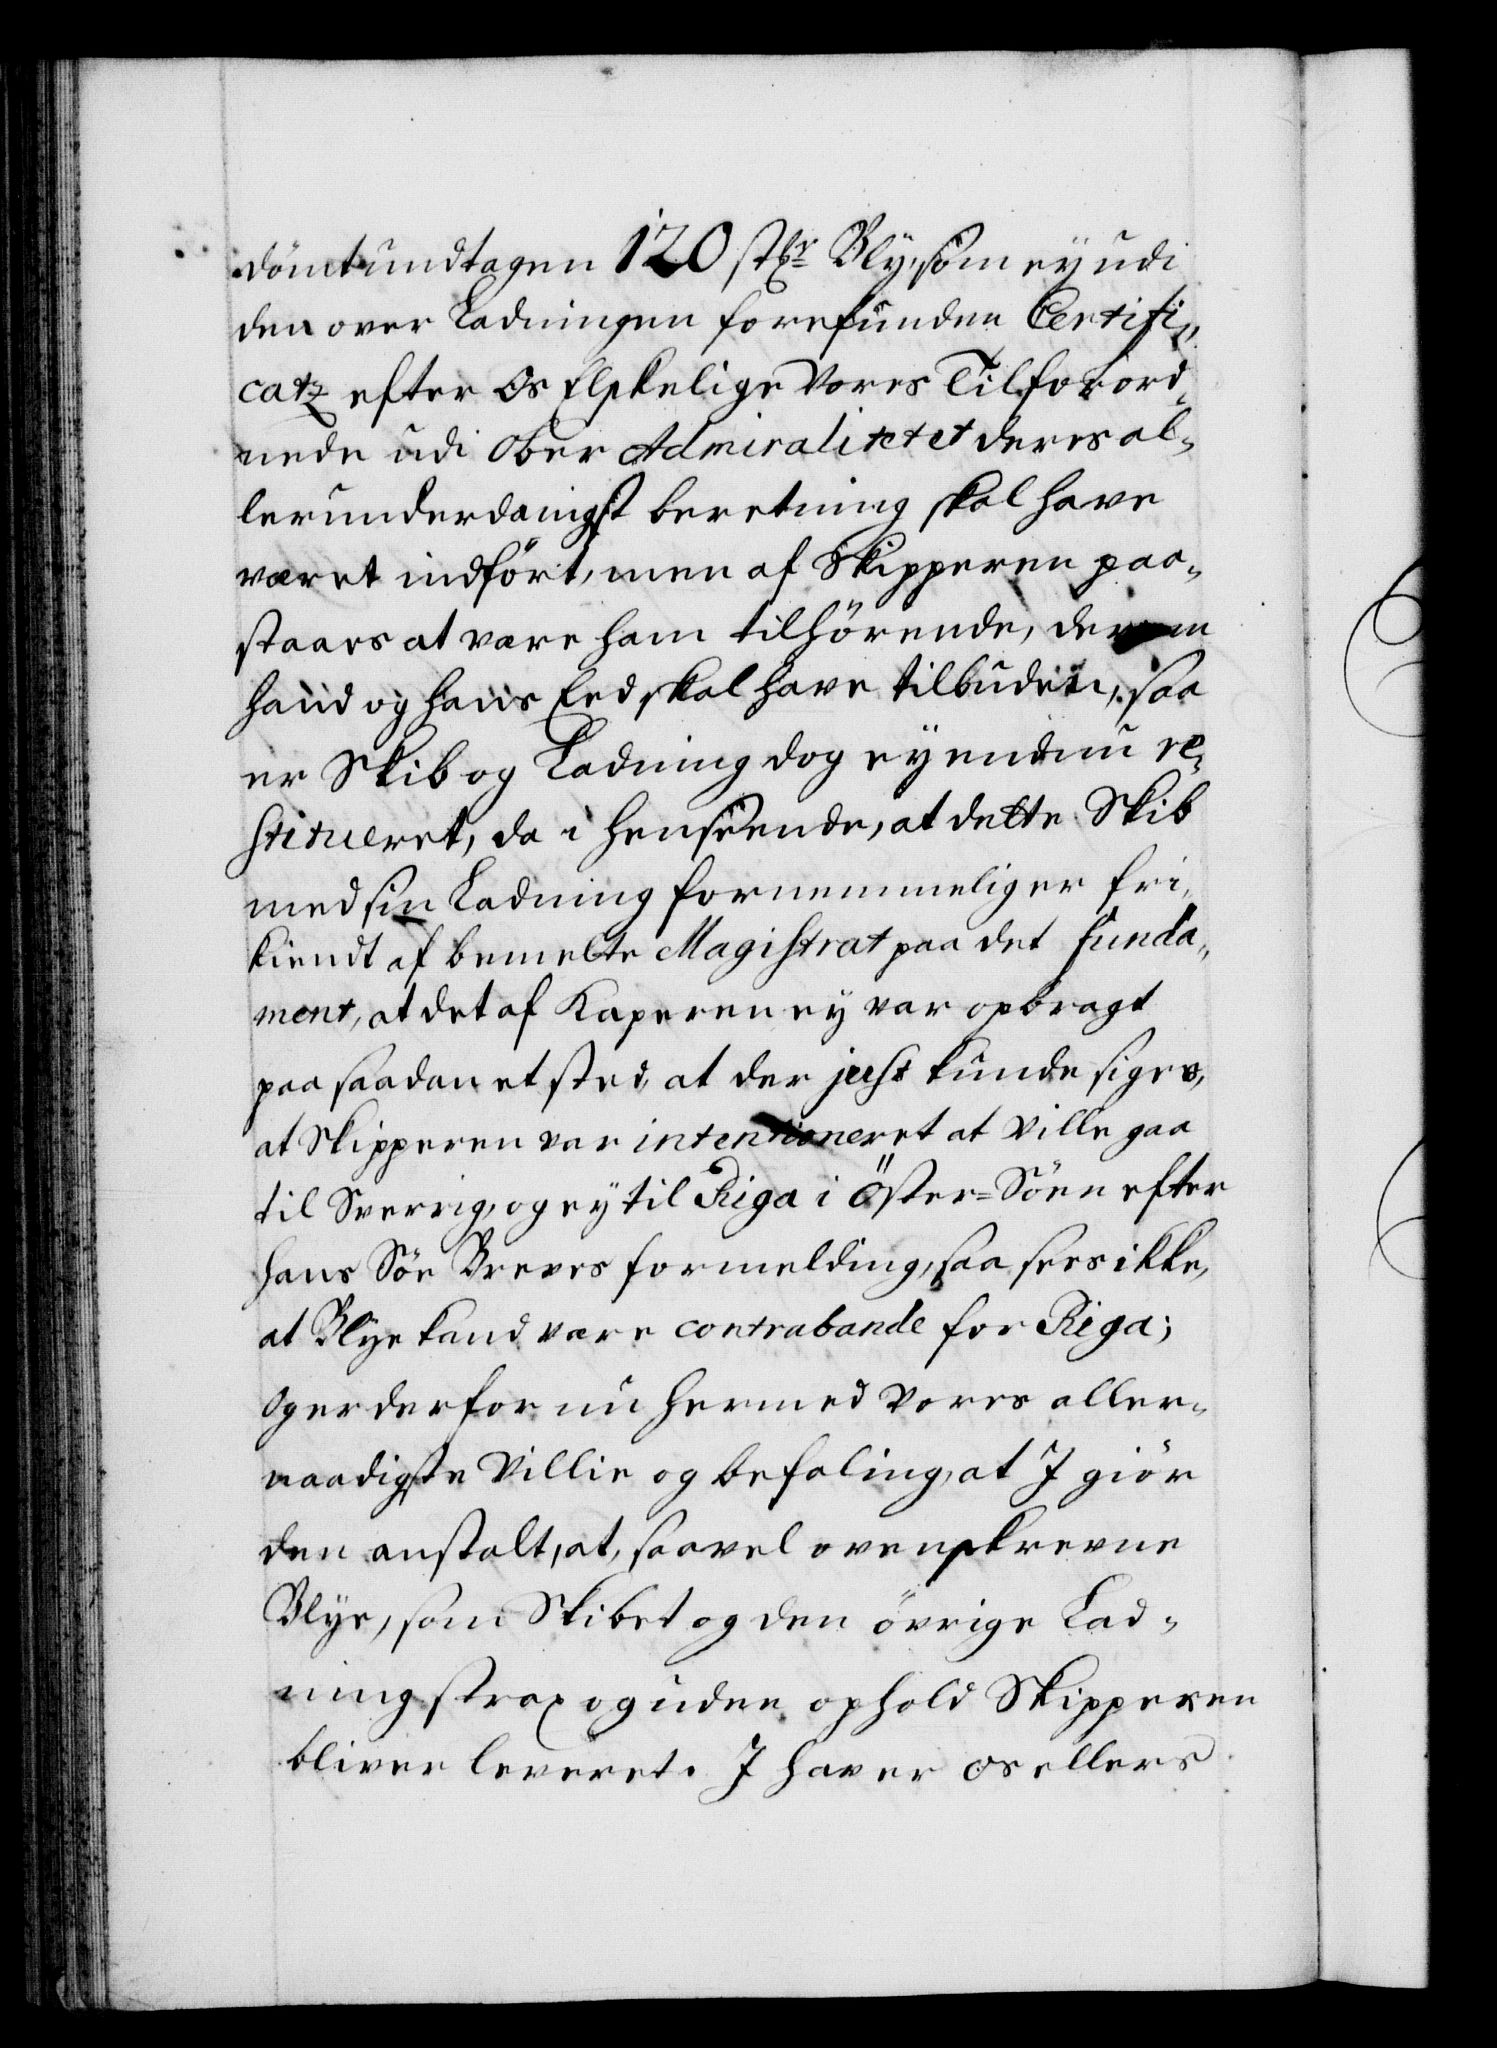 dömt undtagen 120 stkr Bly, som ey udi
den over Ladningen forefunden Certifi-
catz efter Os Elskelige Vores Tilforord-
nede udi Ober Admiralitetet deres al-
lerunderdanigst beretning skal have
været indfört, men af Skipperen paa-
staaes at være ham tilhörende, derom
hand og hans Eed skal have tilbuden, saa
er Skib og Ladning dog ey endnu re-
stitueret, da i henseende, at dette Skib
med sin Ladning fornemmelig er fri-
kiendt af bemelte Magistrat paa det funda-
ment, at det af Kaperen ey var opbragt
paa saadan et sted, at der just kunde siges,
at Skipperen var intentioneret at ville gaa
til Sverrig, og ey til Riga i Öster-Söen efter
hans Söe Breves formelding, saa sees ikke,
at Blye kand være contrabande for Riga;
Og er derfor nu hermed Vores aller-
naadigste Villie og befaling, at I giör
den anstalt, at, saavel ovenskrevne
Blye, som Skibet og den övrige Lad-
ning strax og uden ophold Skipperen
bliver leveret. I haver os ellers